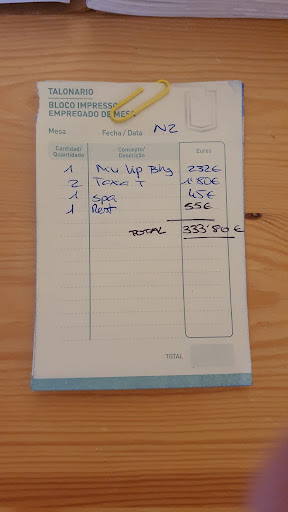 TALONARIO
BLOCO IMPRESSO
EMPREGADO DE MESA
Mesa Fecha / Data N2
Cantidad/ Concepto/ Euros
Quantidade Descrição
1 Vip Bhg 232€
2 Taxa T 1'80€
1 spa 45€
1 Rest 55€
TOTAL 333'80€
TOTAL